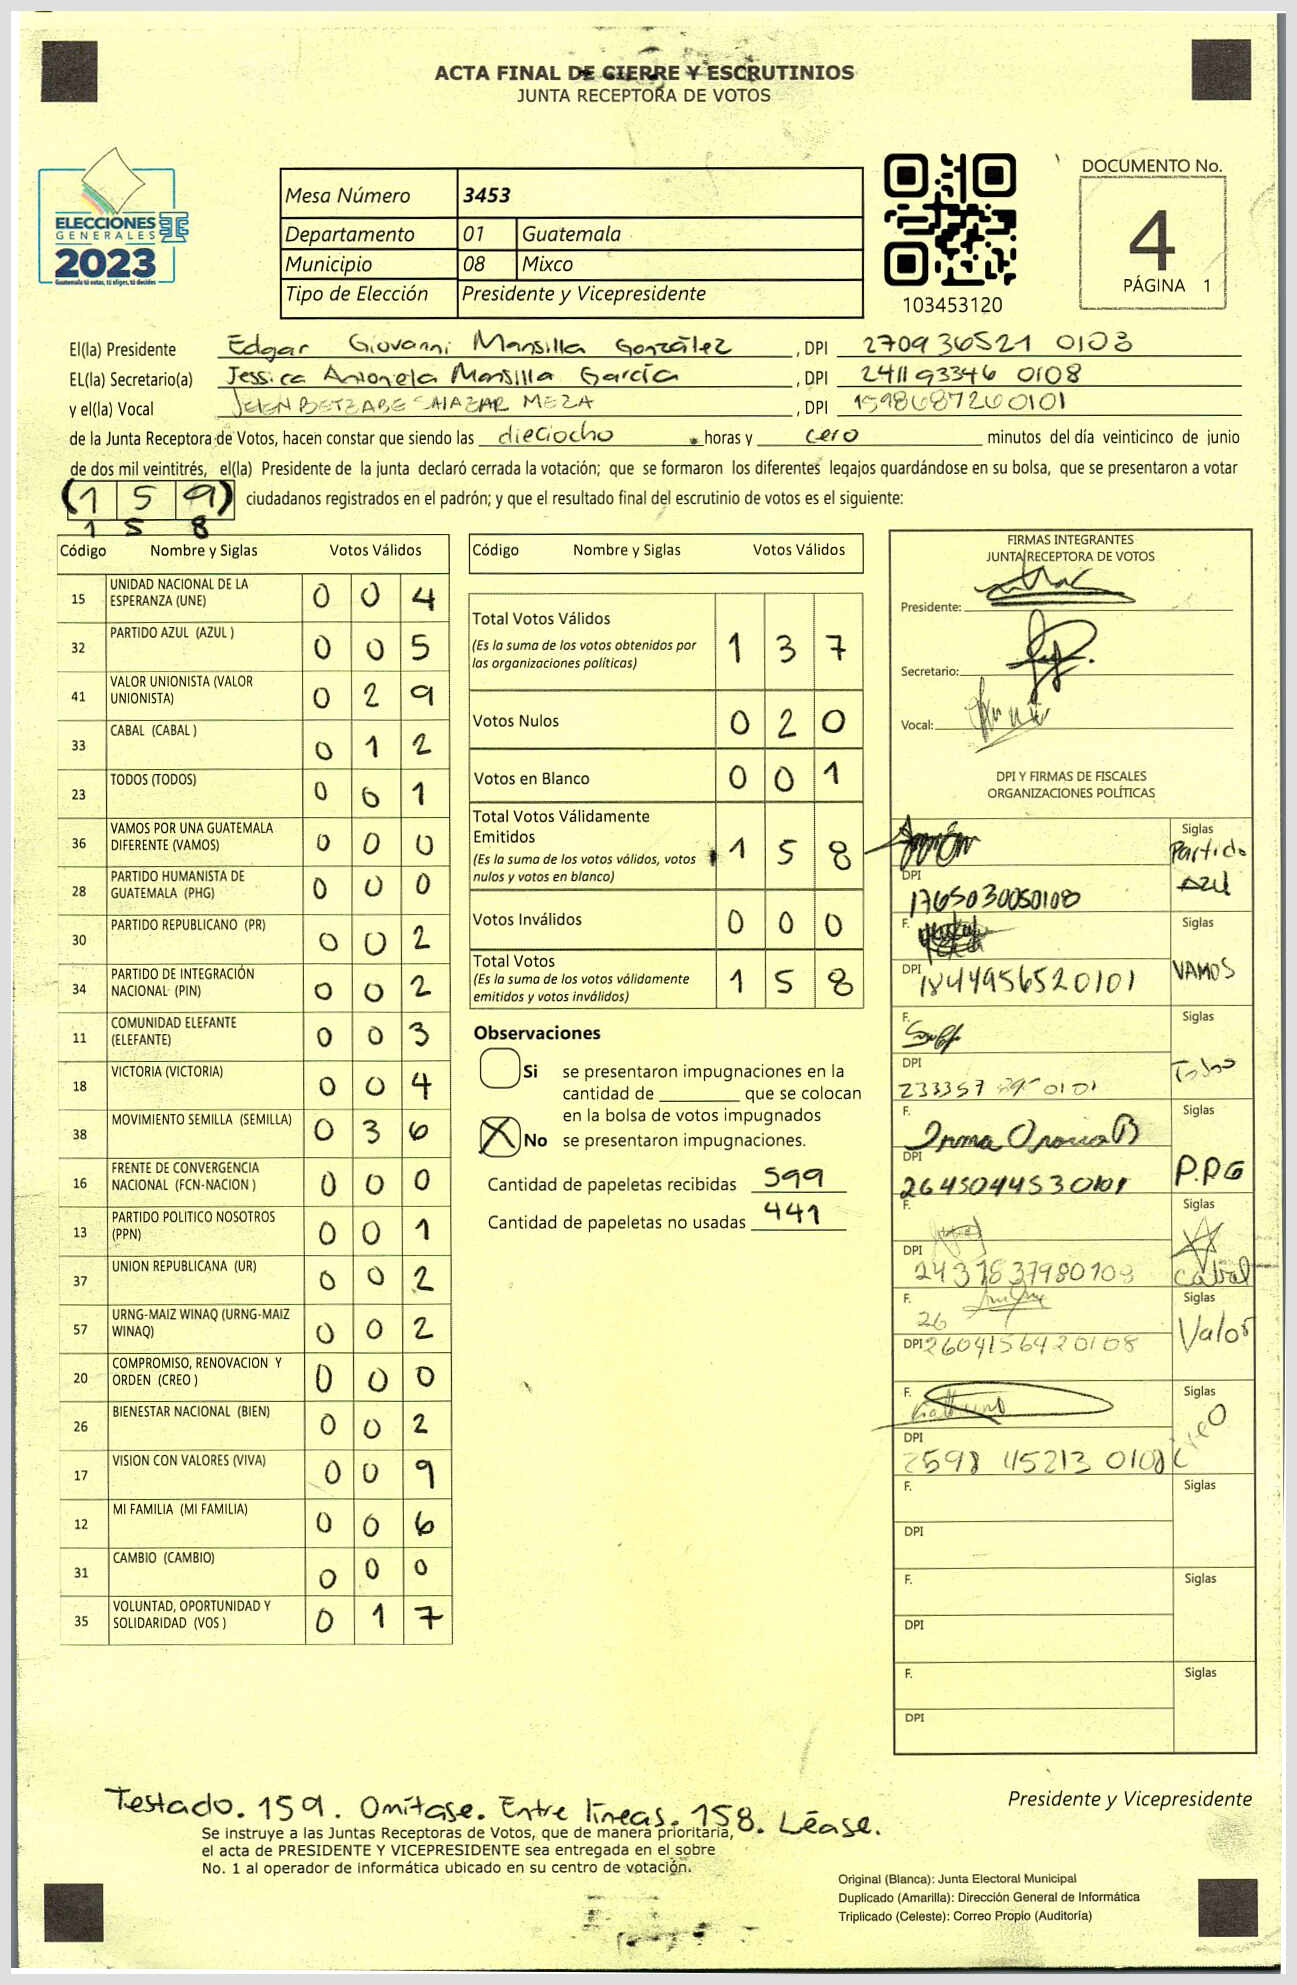 ACTA FINAL DE CIERRE Y ESCRUTINIOS
JUNTA RECEPTORA DE VOTOS
ELECCIONES
GENERALES
2023
Guatemala tú votas, tú eliges, tú decides
Mesa Número 3453
Departamento 01 Guatemala
Municipio 08 Mixco
Tipo de Elección Presidente y Vicepresidente
103453120
DOCUMENTO No.
4
PÁGINA 1
El(la) Presidente Edgar Giovanni Mansilla González, DPI 270936521 0103
EL(la) Secretario(a) Jessica Antonieta Mansilla García, DPI 241193346 0108
y el(la) Vocal SALAZAR MEZA, DPI 1598687260101
de la Junta Receptora de Votos, hacen constar que siendo las dieciocho horas y cero minutos del día veinticinco de junio
de dos mil veintitrés, el(la) Presidente de la junta declaró cerrada la votación; que se formaron los diferentes legajos guardándose en su bolsa, que se presentaron a votar
(1 5 9) ciudadanos registrados en el padrón; y que el resultado final del escrutinio de votos es el siguiente:
1 5 8
Código Nombre y Siglas Votos Válidos
15 UNIDAD NACIONAL DE LA ESPERANZA (UNE) 0 0 4
32 PARTIDO AZUL (AZUL ) 0 0 5
41 VALOR UNIONISTA (VALOR UNIONISTA) 0 2 9
33 CABAL (CABAL ) 0 1 2
23 TODOS (TODOS) 0 0 1
36 VAMOS POR UNA GUATEMALA DIFERENTE (VAMOS) 0 0 0
28 PARTIDO HUMANISTA DE GUATEMALA (PHG) 0 0 0
30 PARTIDO REPUBLICANO (PR) 0 0 2
34 PARTIDO DE INTEGRACIÓN NACIONAL (PIN) 0 0 2
11 COMUNIDAD ELEFANTE (ELEFANTE) 0 0 3
18 VICTORIA (VICTORIA) 0 0 4
38 MOVIMIENTO SEMILLA (SEMILLA) 0 3 6
16 FRENTE DE CONVERGENCIA NACIONAL (FCN-NACION ) 0 0 0
13 PARTIDO POLITICO NOSOTROS (PPN) 0 0 1
37 UNION REPUBLICANA (UR) 0 0 2
57 URNG-MAIZ WINAQ (URNG-MAIZ WINAQ) 0 0 2
20 COMPROMISO, RENOVACION Y ORDEN (CREO ) 0 0 0
26 BIENESTAR NACIONAL (BIEN) 0 0 2
17 VISION CON VALORES (VIVA) 0 0 9
12 MI FAMILIA (MI FAMILIA) 0 0 6
31 CAMBIO (CAMBIO) 0 0 0
35 VOLUNTAD, OPORTUNIDAD Y SOLIDARIDAD (VOS ) 0 1 7
Código Nombre y Siglas Votos Válidos
Total Votos Válidos 1 3 7
(Es la suma de los votos obtenidos por
las organizaciones políticas)
Votos Nulos 0 2 0
Votos en Blanco 0 0 1
Total Votos Válidamente
Emitidos 1 5 8
(Es la suma de los votos válidos, votos
nulos y votos en blanco)
Votos Inválidos 0 0 0
Total Votos 1 5 8
(Es la suma de los votos válidamente
emitidos y votos inválidos)
Observaciones
Si se presentaron impugnaciones en la
cantidad de ________ que se colocan
en la bolsa de votos impugnados
X No se presentaron impugnaciones.
Cantidad de papeletas recibidas 599
Cantidad de papeletas no usadas 441
FIRMAS INTEGRANTES
JUNTA RECEPTORA DE VOTOS
Presidente:
Secretario:
Vocal:
DPI Y FIRMAS DE FISCALES
ORGANIZACIONES POLÍTICAS
Siglas Partido Azul
DPI 1765030050108
F. Siglas VAMOS
DPI 1844956520101
F. Siglas Todos
DPI 233357 0101
F. Irma B Siglas P.P.G
DPI 2645044530101
F. Siglas Cabal
DPI 2431837980108
F. 26 Siglas Valor
DPI 2604156420108
F. Siglas Creo
DPI 2598 45213 0108
F. Siglas
DPI
F. Siglas
DPI
F. Siglas
DPI
Presidente y Vicepresidente
Testado. 159. Omítase. Entre líneas. 158. Léase.
Se instruye a las Juntas Receptoras de Votos, que de manera prioritaria,
el acta de PRESIDENTE Y VICEPRESIDENTE sea entregada en el sobre
No. 1 al operador de informática ubicado en su centro de votación.
Original (Blanca): Junta Electoral Municipal
Duplicado (Amarilla): Dirección General de Informática
Triplicado (Celeste): Correo Propio (Auditoría)